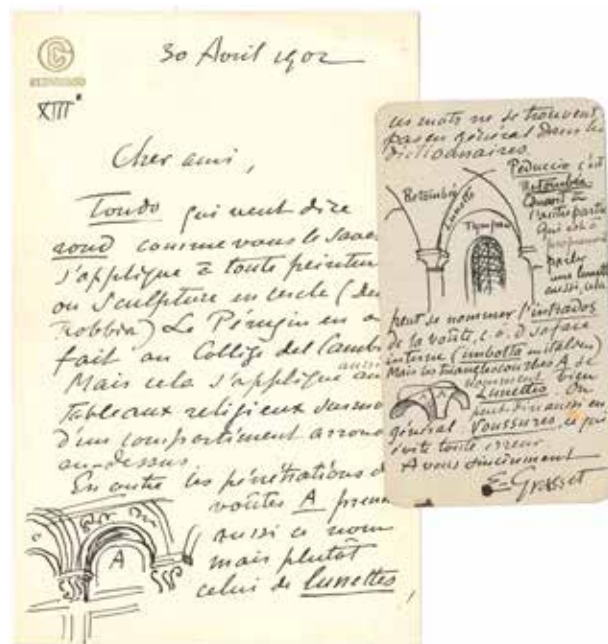 30 Avril 1902
XIIIe
Cher ami,
Tondo qui veut dire
rond comme vous le save
s'applique à toute peintur
ou sculpture en cercle (De
Robbia) Le Pérugin en a
fait au Collège del Camb
Mais cela s'applique aussi au
Tableaux religieux surmo
d'un compartiment arrond
au-dessus
En outre les pénétrations d
voûtes A prenn
aussi ce nom
mais plutôt
celui de lunettes,
A
ces mots ne se trouvent
pas en général dans les
dictionnaires.
Peduccio c'est
Retombée
Quant à
l'autre partie
qui est à
proprement
parler
une lunette
aussi, cela
Retombée
Lunette
Tympan
peut se nommer l'intrados
de la voûte, c. à. D sa face
interne (imbotto en italien)
Mais les triangles courbes A se
nomment
Lunettes bien
On
peut dire aussi en
général Voussures, ce qui
évite toute erreur
A vous sincèrement
E. Grasset
A